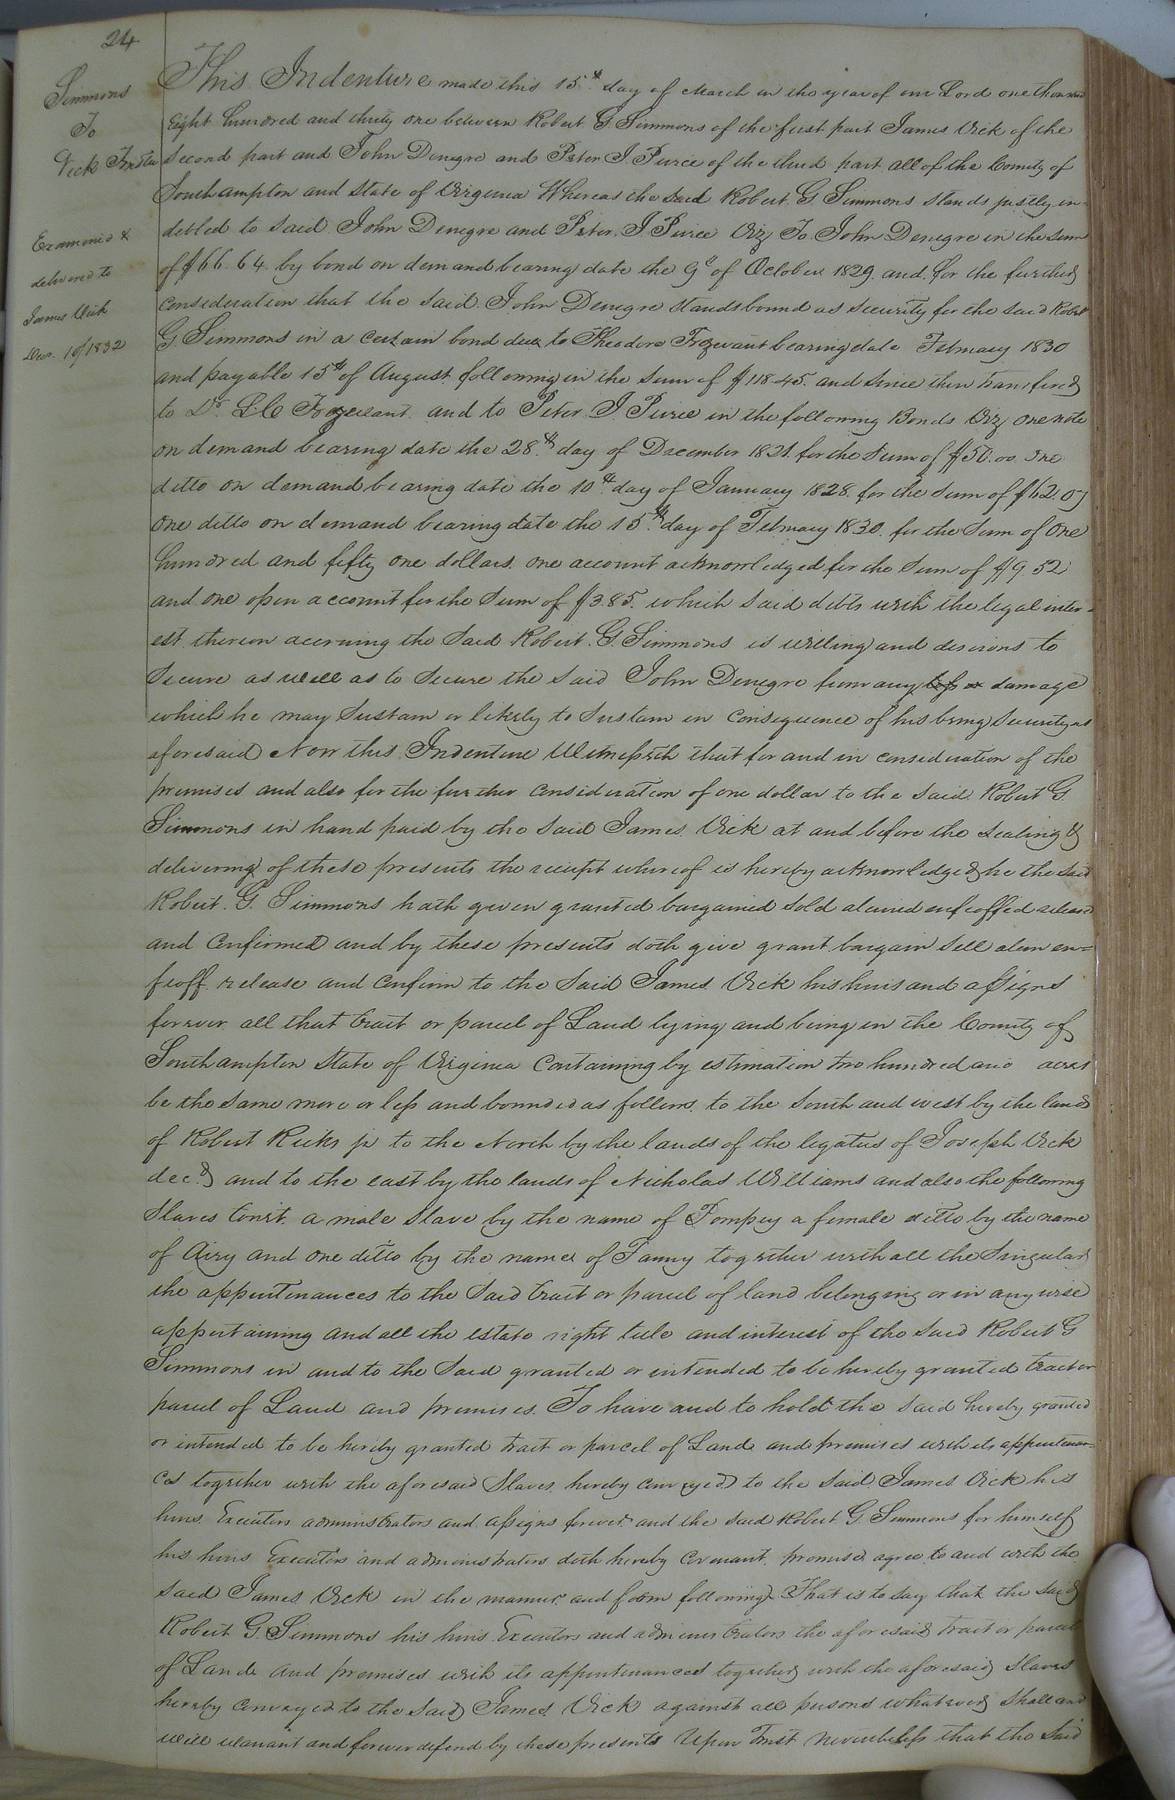 24
Simmons
To
Vick Trustee
Examined &
delivered to
James Vick
Mar. 19/1832
This Indenture made this 15th day of March in the year of our Lord one thousand
Eight hundred and thirty one between Robert G Simmons of the first part James Vick of the
Second part and John Denegre and Peter J Pierce of the third part all of the County of
Southampton and State of Virginia Whereas the said Robert G Simmons stands justly in-
debted to said John Denegre and Peter J Pierce Viz To John Denegre in the sum
of $66.64 by bond on demand bearing date the 9th of October 1829 and for the further
consideration that the said John Denegre stands bound as security for the said Robert
G Simmons in a certain bond due to Theodore Trezvant bearing date February 1830
and payable 15th of August following in the sum of $118.45 and since then transfered
to Dr. L C Trezevant and to Peter J Pierce in the following Bonds Viz one note
on demand bearing date the 28th day of December 1821 for the sum of $50.00 One
ditto on demand bearing date the 10th day of January 1828 for the sum of $62.07
One ditto on demand bearing date the 15th day of February 1830 for the sum of One
hundred and fifty one dollars. one account acknowledged for the sum of $9.52
and one open account for the sum of $3.85. which said debts with the legal inter-
est thereon accruing the said Robert G. Simmons is willing and desirous to
Secure as well as to secure the said John Denegre from any loss or damage
which he may sustain or likely to sustain in consequence of his being security as
aforesaid Now this Indenture Witnesseth that for and in consideration of the
premises and also for the further consideration of one dollar to the said Robert G
Simmons in hand paid by the said James Vick at and before the sealing &
delivering of these presents the receipt whereof is hereby acknowledged he the said
Robert G. Simmons hath given granted bargained sold aliened enfeoffed released
and Confirmed and by these presents doth give grant bargain sell alien en=
feoff release and Confirm to the said James Vick his heirs and assigns
forever all that tract or parcel of Land lying and being in the County of
Southampton State of Virginia Containing by estimation two hundred and acres
be the same more or less and bounded as follows to the South and west by the lands
of Robert Ricks jr to the North by the lands of the legatees of Joseph Vick
decd and to the east by the lands of Nicholas Williams and also the following
Slaves to wit. a male slave by the name of Pompey a female ditto by the name
of Airy and one ditto by the name of Fanny together with all the Singular
the appurtenances to the said tract or parcel of land belonging or in any wise
appertaining and all the estate right title and interest of the said Robert G
Simmons in and to the said granted or intended to be hereby granted tract or
parcel of Land and premises. To have and to hold the said hereby granted
or intended to be hereby granted tract or parcel of Land and premises with its appurtenan-
ces together with the aforesaid Slaves hereby conveyed to the said James Vick his
heirs Executors administrators and assigns forever and the said Robert G. Simmons for himself
his heirs Executors and administrators doth hereby covenant promise agree to and with the
said James Vick in the manner and form following That is to say that the said
Robert G Simmons his heirs Executors and administrators the aforesaid tract or parcel
of Land and premises with its appurtenances together with the aforesaid Slaves
hereby conveyed to the said James Vick against all persons whatsoever shall and
will warrant and forever defend by these presents Upon Trust nevertheless that the said